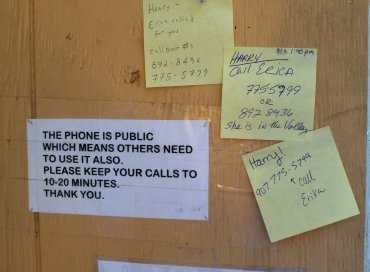 Henry -
Erica called
for you
Call out #s
892-8436
775-5799
HARRY 8/13 1:40 pm
Call ERICA
775 5799
OR
892 8436
She is in the Valley
Harry!
907 775-5799
call
Erika
THE PHONE IS PUBLIC
WHICH MEANS OTHERS NEED
TO USE IT ALSO.
PLEASE KEEP YOUR CALLS TO
10-20 MINUTES.
THANK YOU.